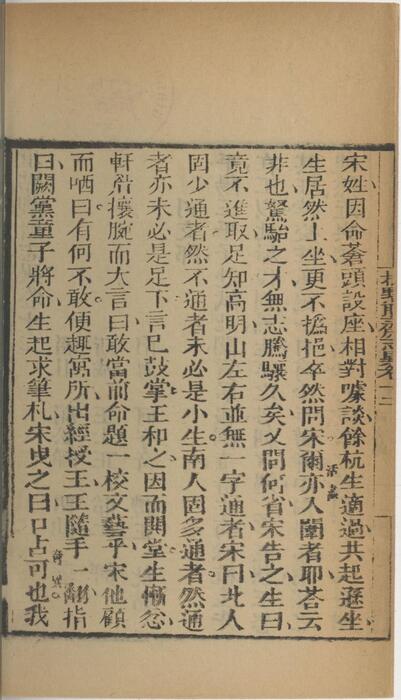 宋姓因命蒼頭設座相對噱談餘杭生適過共起遜坐
生居然上坐更不撝挹卒然問宋爾亦入闈者耶荅云
非也駑駘之才無志騰驤久矣又問何省宋告之生曰
竟不進取足知高明山左右並無一字通者宋曰北人
固少通者然不通者未必是小生南人固多通者然通
者亦未必是足下言已鼓掌王和之因而閧堂生慚忿
軒眉攘腕而大言曰敢當前命題一校文藝乎宋他顧
而哂曰有何不敢便趨寓所出經授王王隨手一翻指
曰闕黨童子將命生起求筆札宋曳之曰口占可也我